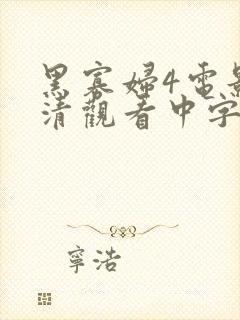 黑寡婦4電影
清觀看中字
寧浩